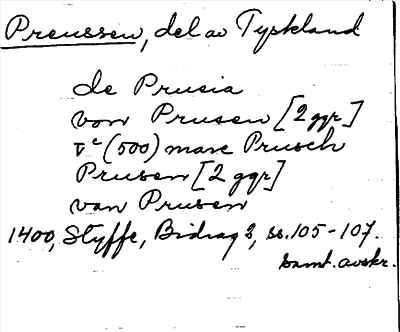 Preussen, del av Tyskland
de Prusia
von Prusen [2 ggr]
vc (500) marc Prusch
Prusen [2 ggr]
van Prusen
1400, Styffe, Bidrag 2, ss. 105-107.
samt. avskr.